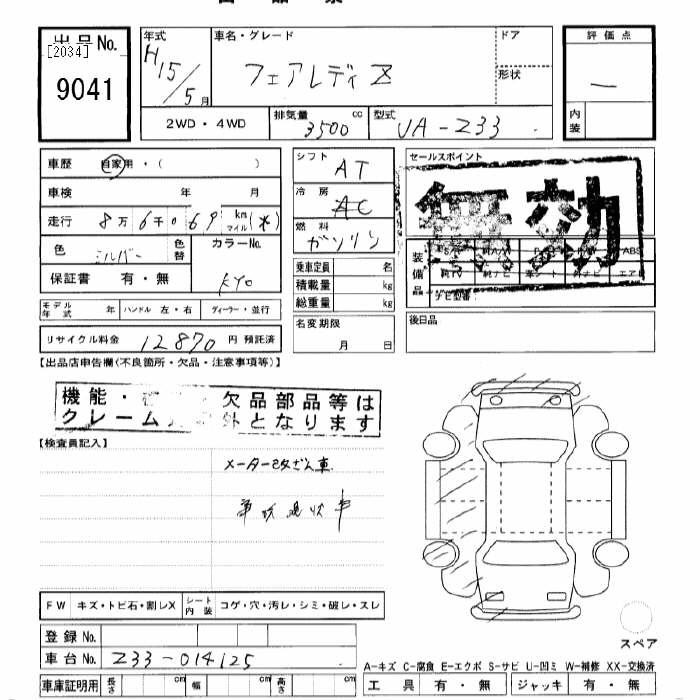 出品No.
[2034]
9041
年式
H15/5月
車名・グレード
フェアレディZ
ドア
形状
評価点
—
内装
2WD・4WD
排気量 3500 cc
型式 UA-Z33
車歴 自家用・( )
車検 年 月
走行 8万6千069 km マイル (*)
色 シルバー 色替
カラーNo. KY0
保証書 有・無
モデル年式 年 ハンドル 左・右 ディーラー・並行
リサイクル料金 12870 円 預託済
シフト AT
冷房 AC
燃料 ガソリン
乗車定員 名
積載量 kg
総重量 kg
名変期限
月 日
セールスポイント
無効
装備品
ABS
純TV 純ナビ 革シート 外ナビ エアB
ナビ型番:
後日品
【出品店申告欄(不良箇所・欠品・注意事項等)】
機能・ 欠品部品等は
クレーム 外となります
【検査員記入】
メーター改ざん車
車
FW キズ・トビ石・割レX シート内装 コゲ・穴・汚レ・シミ・破レ・スレ
登録No.
車台No. Z33-014125
車庫証明用 長さ cm 幅 cm 高さ cm
スペア
A-キズ C-腐食 E-エクボ S-サビ U-凹ミ W-補修 XX-交換済
工具 有・無 ジャッキ 有・無